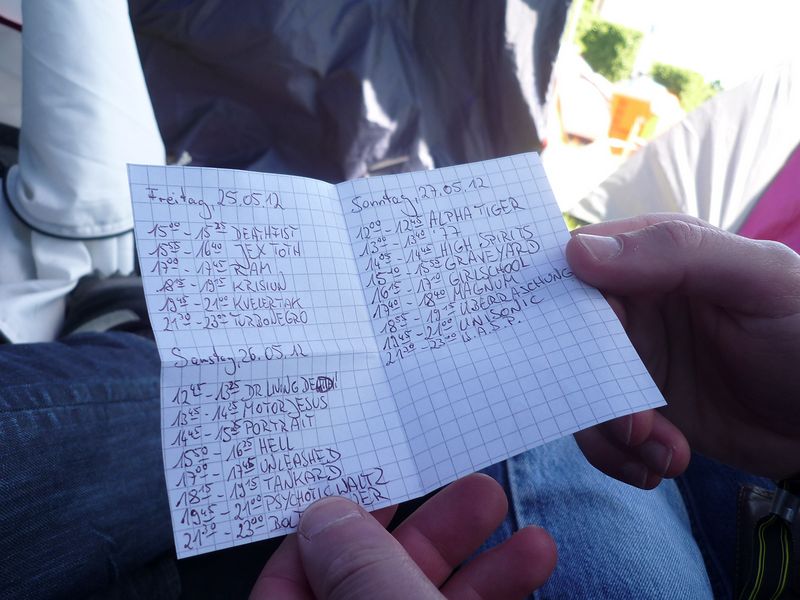 Freitag, 25.05.12
15⁰⁰ - 15²⁵ DEATHFIST
15⁵⁵ - 16⁴⁰ JEX TOTH
17⁰⁰ - 17⁴⁵ RAM
18¹⁵ - 19¹⁵ KRISIUN
19⁴⁵ - 21⁰⁰ KVELERTAK
21³⁰ - 23⁰⁰ TURBONEGRO
Samstag, 26.05.12
12⁴⁵ - 13²⁵ DR. LIVING DEAD!
13⁴⁵ - 14²⁵ MOTORJESUS
14⁴⁵ - 15²⁵ PORTRAIT
15⁵⁰ - 16³⁵ HELL
17⁰⁰ - 17⁴⁵ UNLEASHED
18¹⁵ - 19¹⁵ TANKARD
19⁴⁵ - 21⁰⁰ PSYCHOTIC WALTZ
21³⁰ - 23⁰⁰
Sonntag, 27.05.12
12⁰⁰ - 12⁴⁵ ALPHA TIGER
13⁰⁰ - 13⁴⁰
14⁰⁵ - 14⁴⁵ HIGH SPIRITS
15¹⁰ - 15⁵⁵ GRAVEYARD
16¹⁵ - 17¹⁰ GIRLSCHOOL
17⁴⁰ - 18⁴⁰ MAGNUM
18⁵⁵ - 19¹⁵ ÜBERRASCHUNG
19⁴⁵ - 21⁰⁰ UNISONIC
21³⁰ - 23⁰⁰ W.A.S.P.